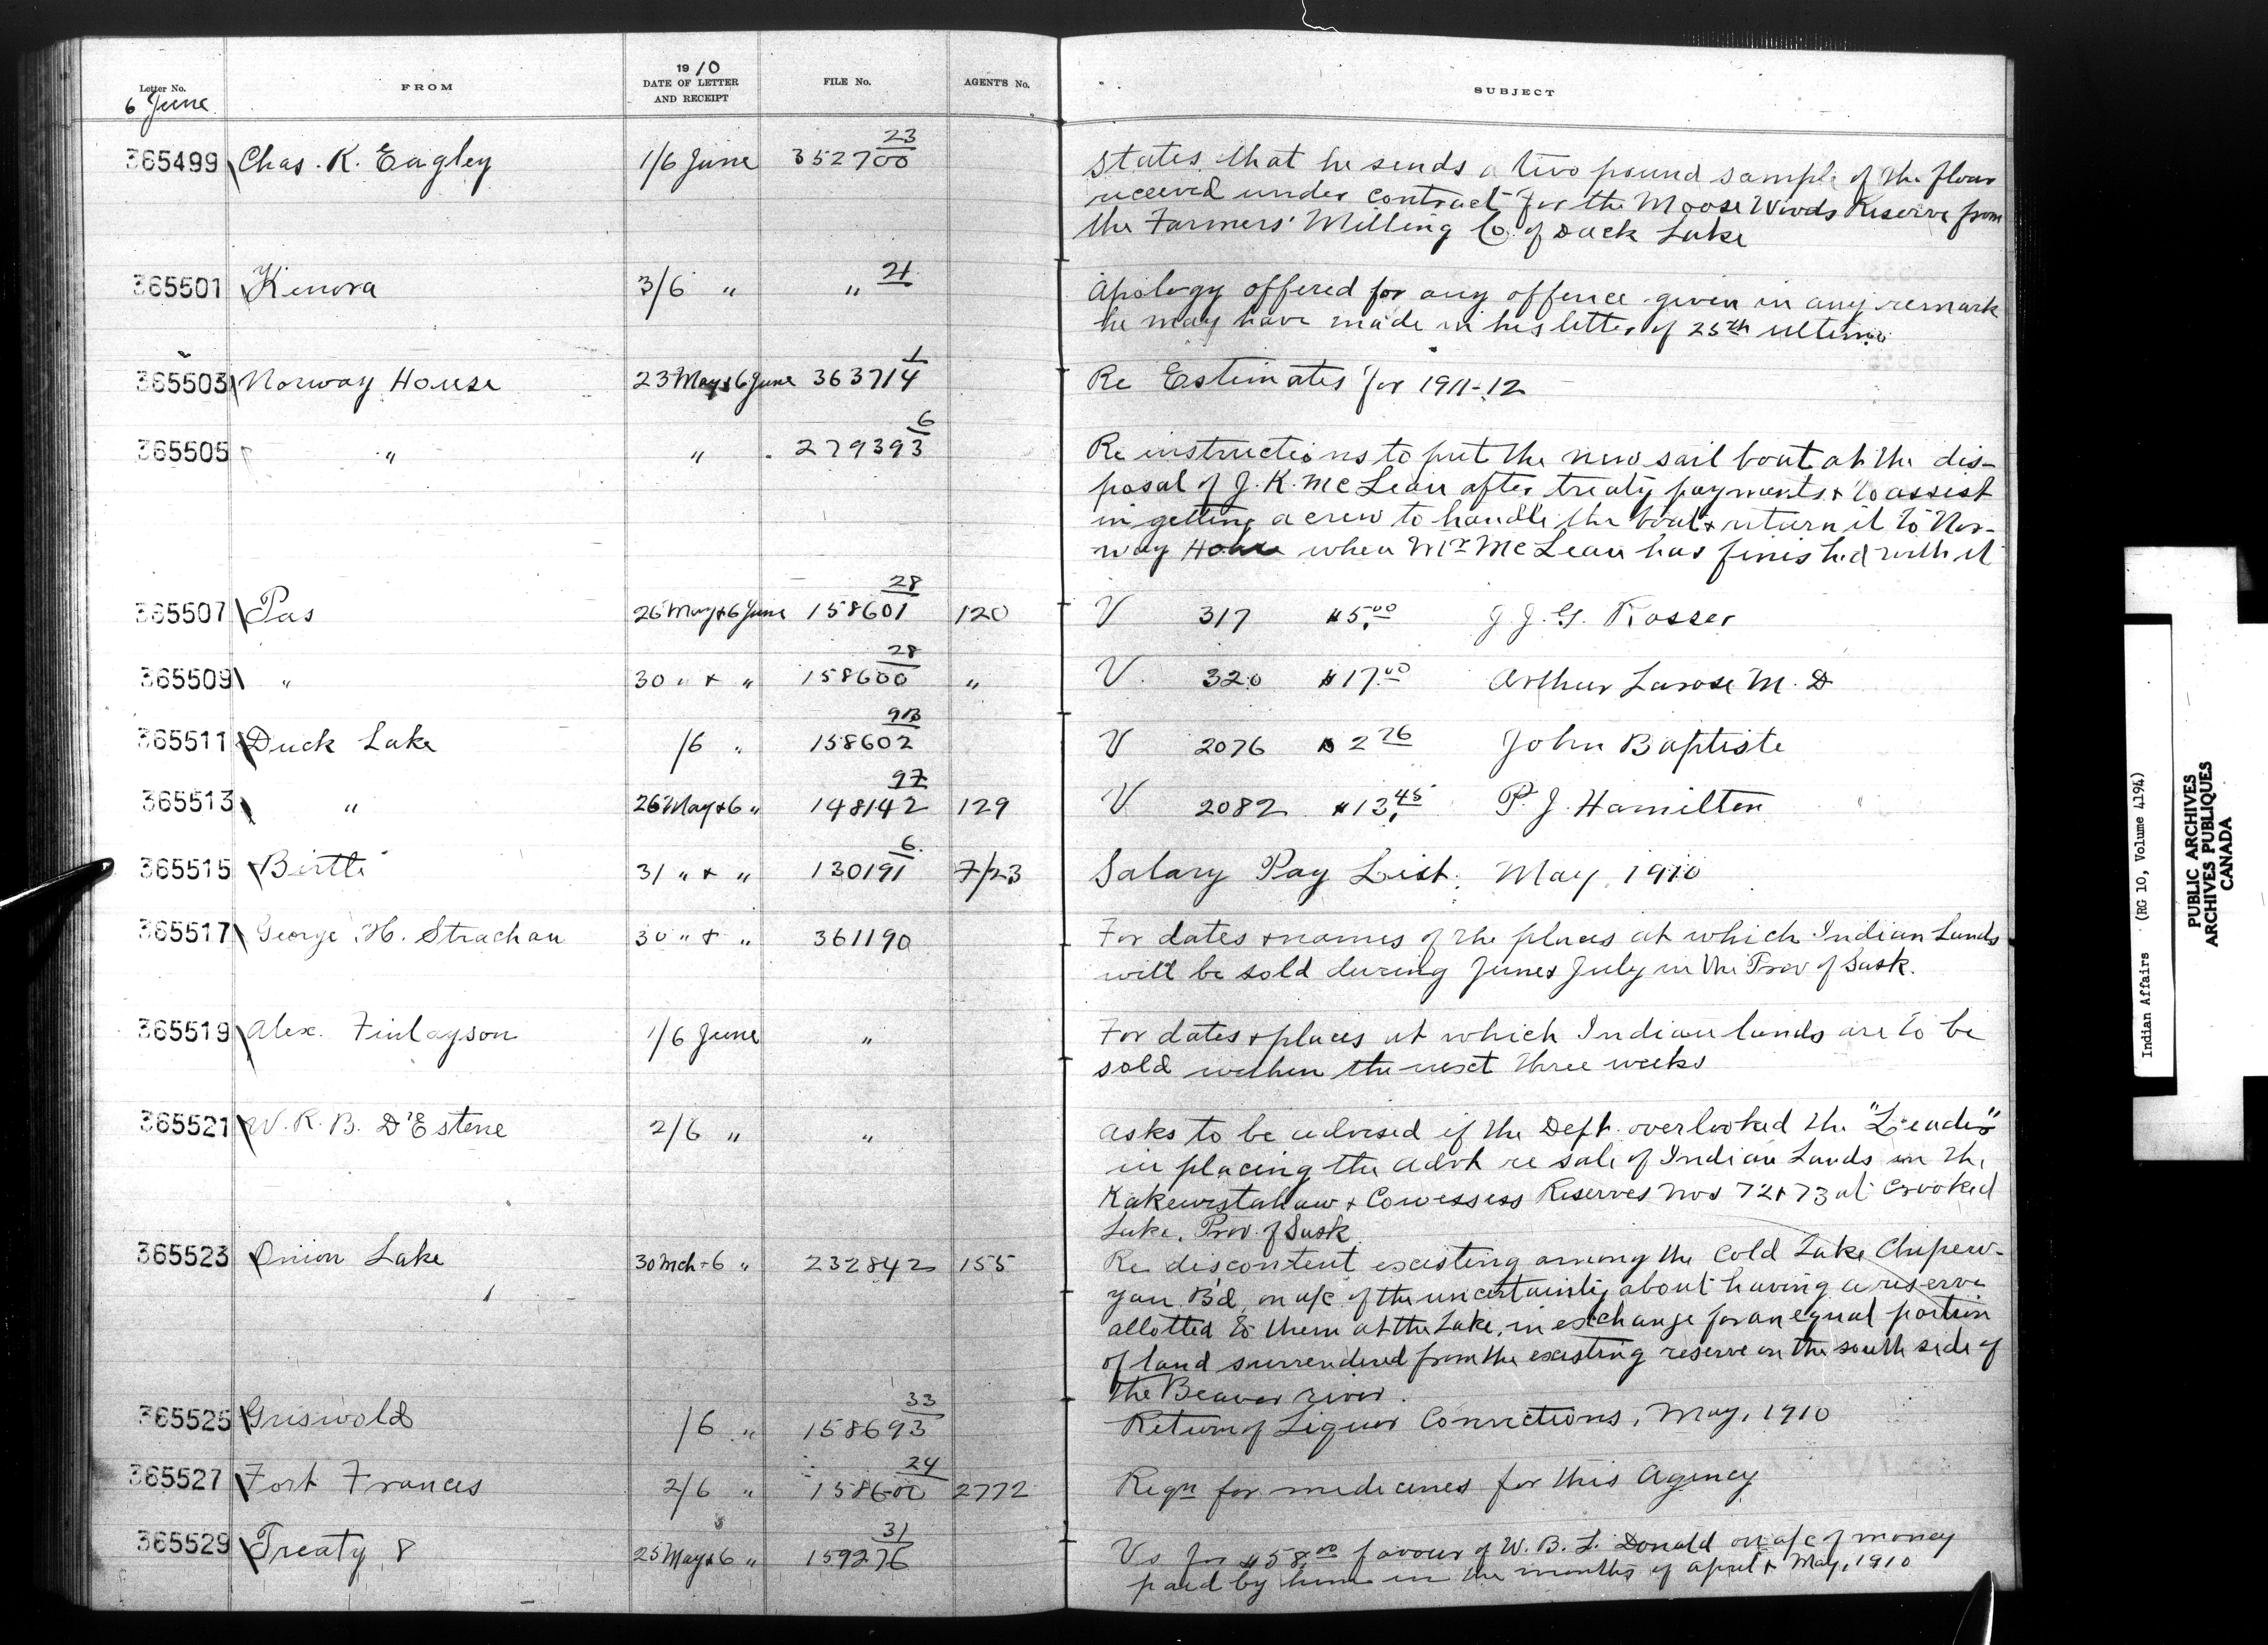 Letter No.
6 June
FROM
1910
DATE OF LETTER
AND RECEIPT
FILE No.
AGENT'S No.
SUBJECT
365499 Chas. K. Eagley 1/6 June 352700 23
States that he sends a two pound sample of the flour
received under contract for the Moose Woods Reserve from
the Farmers' Milling Co. of Duck Lake
365501 Kenora 3/6 " " 21
Apology offered for any offence given in any remark
he may have made in his letter of 25th ultimo
365503 Norway House 23 May & 6 June 363714 1
Re Estimates for 1911-12
365505 " " 279393 6
Re instructions to put the new sail boat at the dis-
posal of J. K. McLean after treaty payments & to assist
in getting a crew to handle the boat & return it to Nor-
way House when Mr McLean has finished with it
365507 Pas 26 May & 6 June 158601 28 120
V 317 $5.00 J. G. Rosser
365509 " 30 " & " 158600 28 "
V. 320 $17.00 Arthur Larose M. D
365511 Duck Lake /6 " 158602 93
V 2076 $2 76 John Baptiste
365513 " 26 May & 6 " 148142 97 129
V 2082 $13.45 P. J. Hamilton
365515 Birtle 31 " & " 130191 6. 7/23
Salary Pay List. May, 1910
365517 George H. Strachan 30 " & " 361190
For dates & names of the places at which Indian Lands
will be sold during June & July in the Prov of Sask.
365519 Alex. Finlayson 1/6 June "
For dates & places at which Indian lands are to be
sold within the next three weeks
365521 W. R. B. D'Estene 2/6 " "
Asks to be advised if the Dept. overlooked the "Leader"
in placing the advt re sale of Indian Lands in the
Kakewistahaw & Cowessess Reserves Nos 72 & 73 at Crooked
Lake, Prov. of Sask.
365523 Onion Lake 30 Mch & 6 " 232842 155
Re discontent existing among the Cold Lake Chipew-
yan Bd, on a/c of the uncertainty about having a reserve
allotted to them at the Lake, in exchange for an equal portion
of land surrendered from the existing reserve on the south side of
the Beaver river.
365525 Griswold /6 " 158693 33
Return of Liquor Convictions, May, 1910
365527 Fort Frances 2/6 " 158600 24 2772
Reqn for medicines for this Agency
365529 Treaty 8 25 May & 6 " 159276 31
Vo for $58.00 favour of W. B. L. Donald on a/c of money
paid by him in the months of April & May, 1910
Indian Affairs (RG 10, Volume 4194)
PUBLIC ARCHIVES
ARCHIVES PUBLIQUES
CANADA